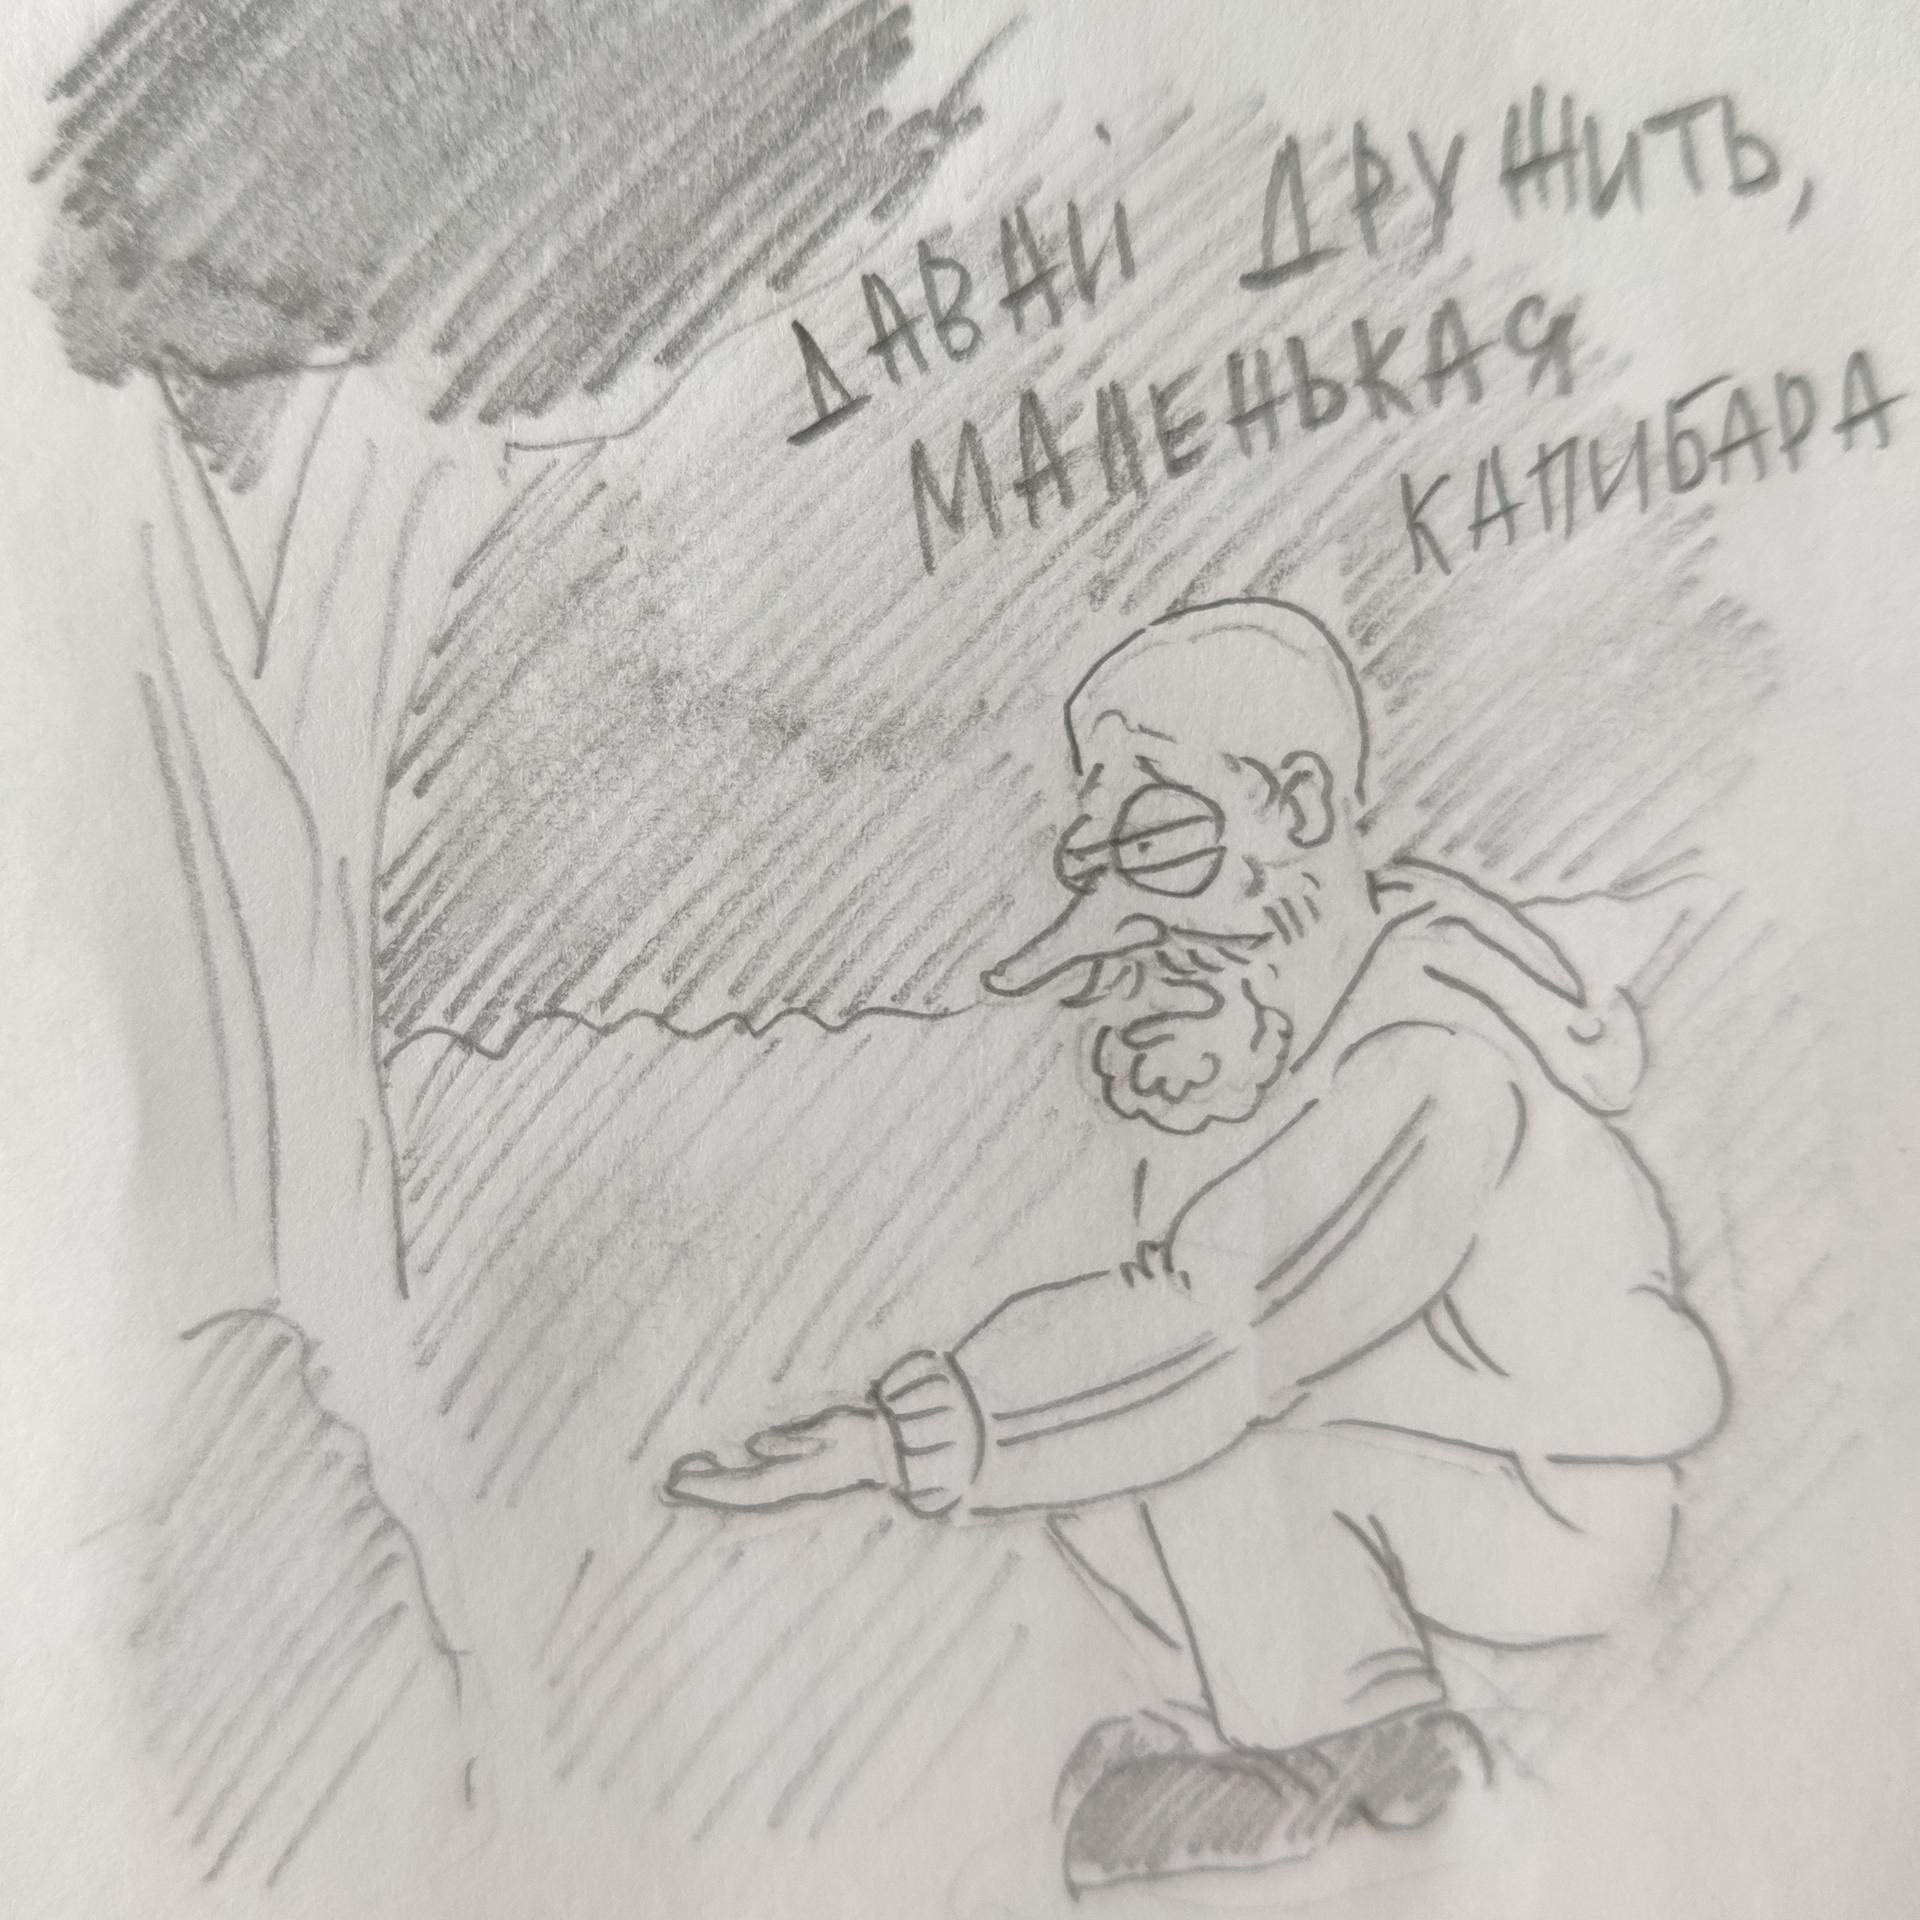 ДАВАЙ ДРУЖИТЬ,
МАЛЕНЬКАЯ
КАПИБАРА